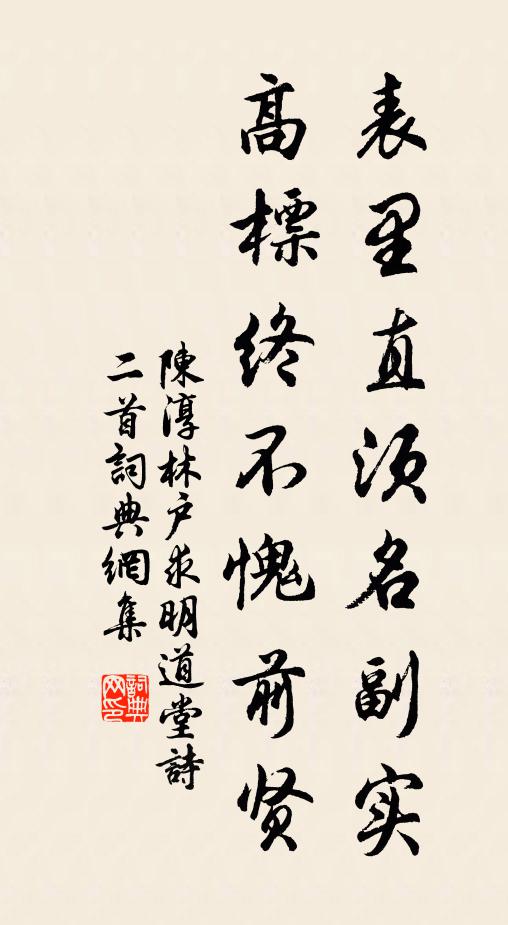 表里直须名副实
高標终不愧前贤
陳淳林户求明道堂詩
二首詞典網集
詞典网印